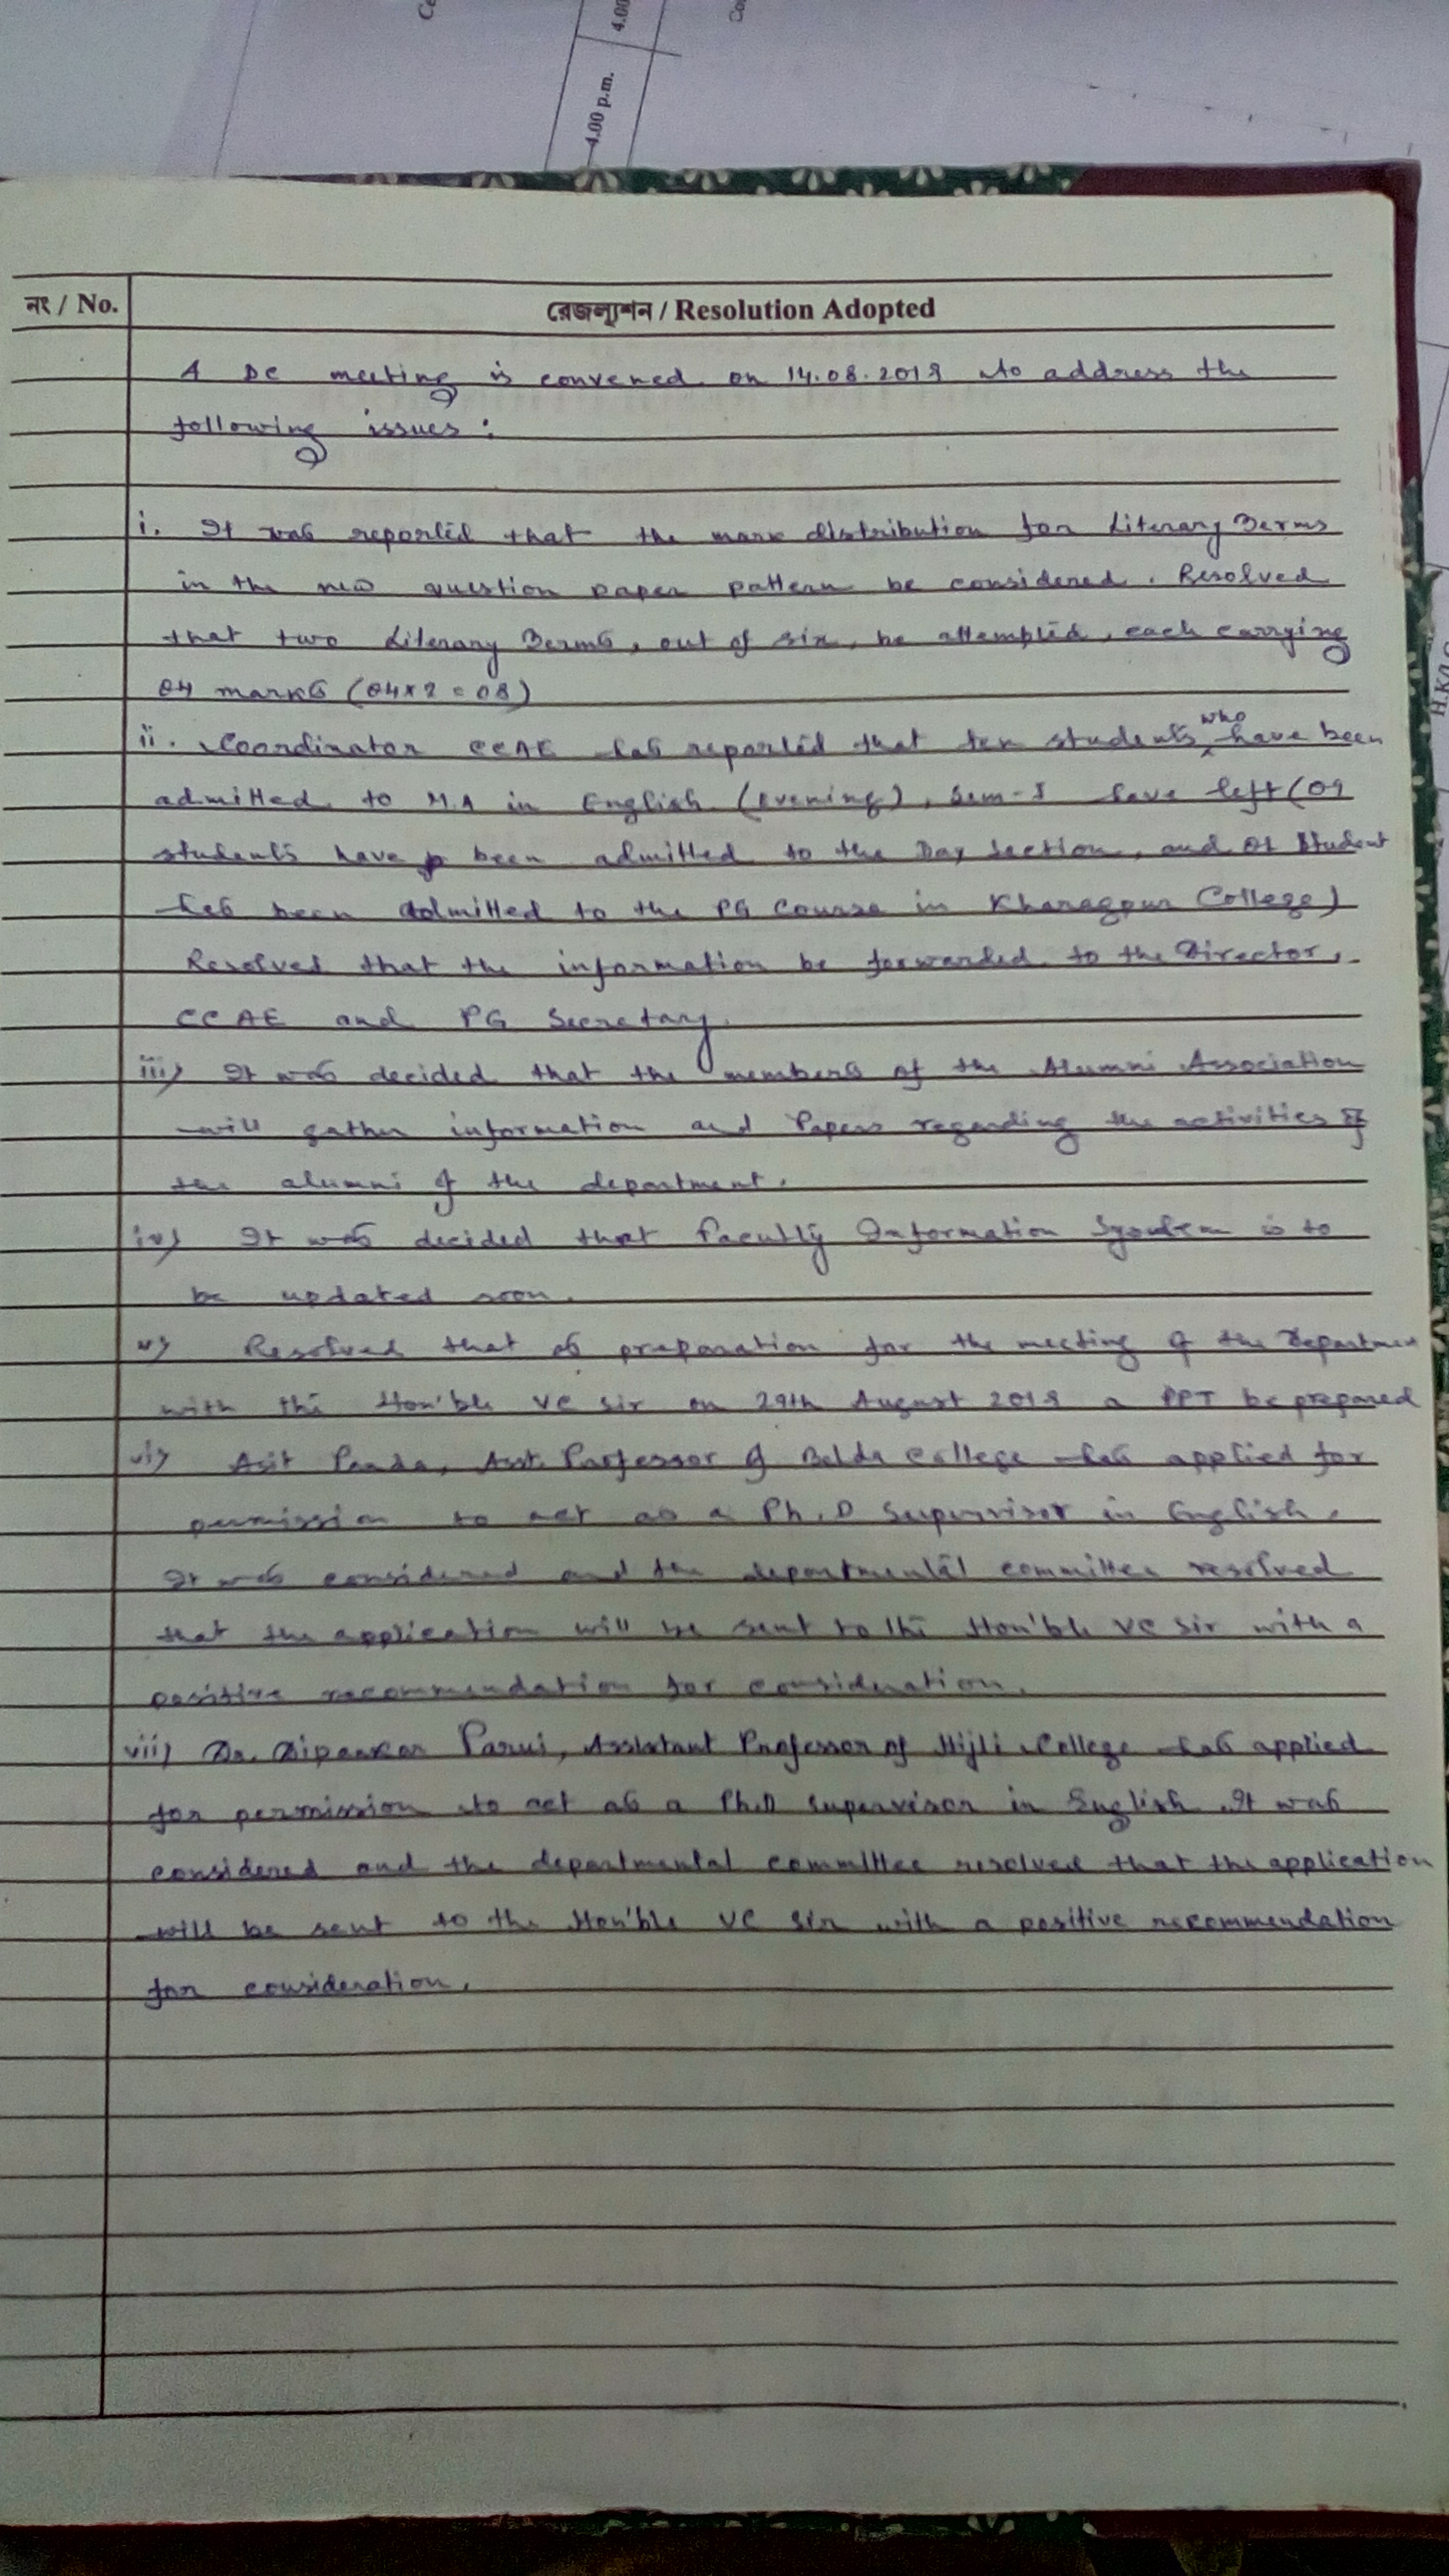 4.00 p.m.
4.00
Co
নং / No.
রেজল্যুশন / Resolution Adopted
A DC meeting is convened on 14.08.2019 to address the
following issues :
i. It was reported that the mark distribution for Literary Terms
in the new question paper pattern be considered. Resolved
that two Literary Terms, out of six, be attempted, each carrying
04 marks (04x2 = 08)
ii. Coordinator CCAE has reported that ten students who have been
admitted to M.A in English (Evening), Sem-I have left (09
students have been admitted to the Day Section, and 01 student
has been admitted to the PG Course in Kharagpur College)
Resolved that the information be forwarded to the Director,
CCAE and PG Secretary.
iii) It was decided that the members of the Alumni Association
will gather information and Papers regarding the activities of
the alumni of the department.
iv) It was decided that Faculty Information System is to
be updated soon.
v) Resolved that as preparation for the meeting of the Departmen
with the Hon'ble VC sir on 29th August 2019 a PPT be prepared
vi) Asit Panda, Asst. Professor of Belda College has applied for
permission to act as a Ph.D Supervisor in English.
It was considered and the departmental committee resolved
that the application will be sent to the Hon'ble VC sir with a
positive recommendation for consideration.
vii) Dr. Dipankar Parui, Assistant Professor of Hijli College has applied
for permission to act as a Ph.D supervisor in English. It was
considered and the departmental committee resolved that the application
will be sent to the Hon'ble VC sir with a positive recommendation
for consideration.